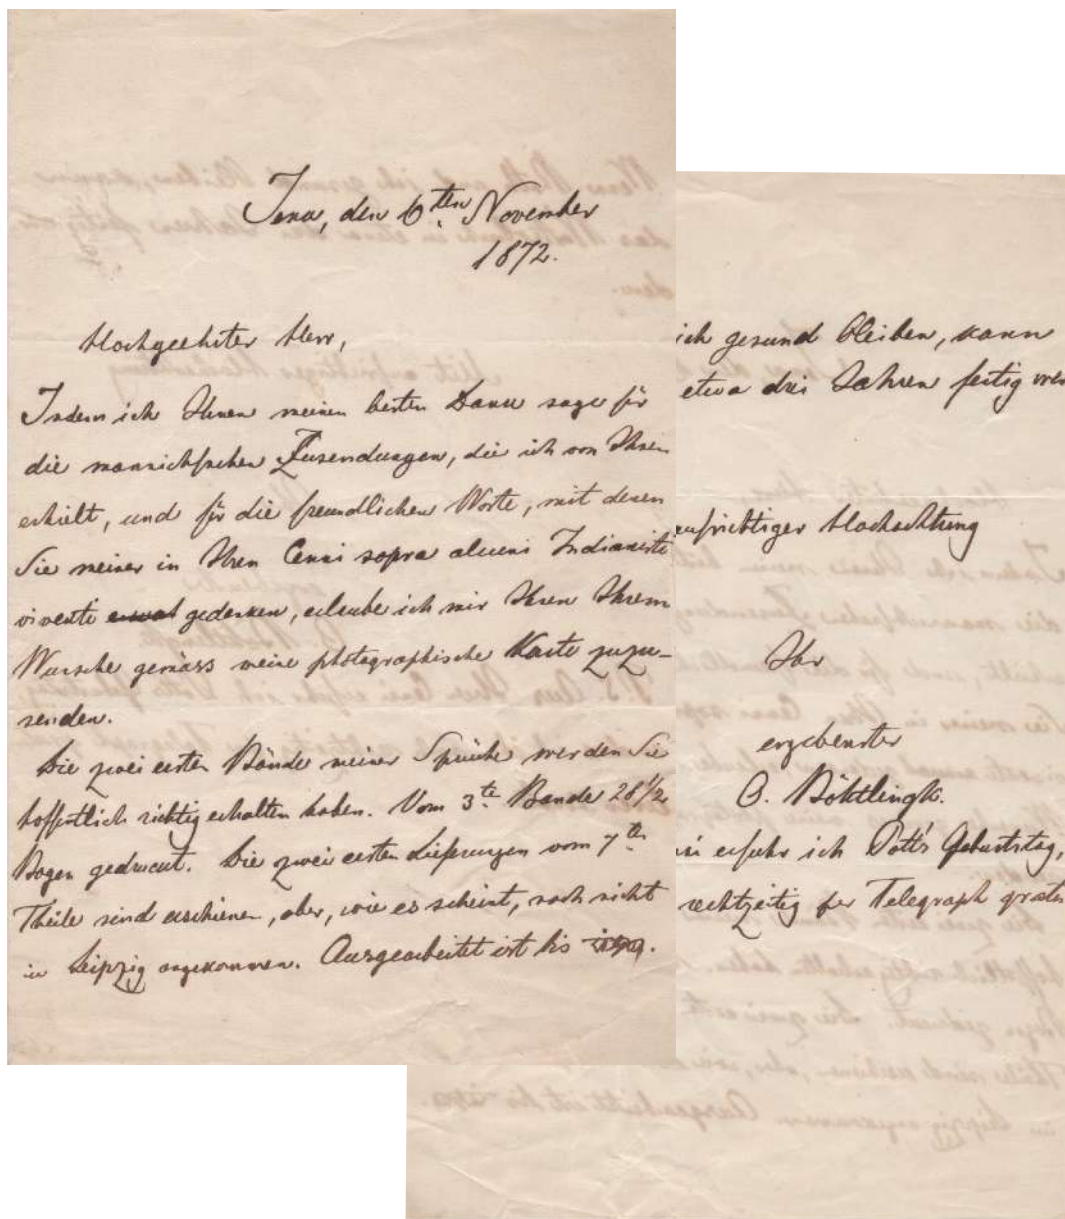 Jena, den 6ten November
1872.
Hochgeehrter Herr,
Indem ich Ihnen meinen besten Dank sage für
die mannichfachen Zusendungen, die ich von Ihnen
erhielt, und für die freundlichen Worte, mit denen
Sie meiner in Ihren Cenni sopra alcuni Indianisti
viventi gedenken, erlaube ich mir Ihren Ihrem
Wunsche gemäss meine photographische Karte zuzu-
senden.
Die zwei ersten Bände meiner Sprüche werden Sie
hoffentlich richtig erhalten haben. Vom 3te Bande 28 1/2
Bogen gedruckt. Die zwei ersten Lieferungen vom 7ten
Theile sind erschienen, aber, wie es scheint, noch nicht
in Leipzig angekommen. Ausgearbeitet ist bis
ich gesund bleiben, kann
etwa drei Jahren fertig wer
aufrichtiger Hochachtung
Ihr
ergebenster
O. Böhtlingk.
erfuhr ich Pott's Geburtstag,
rechtzeitig per Telegraph gratu